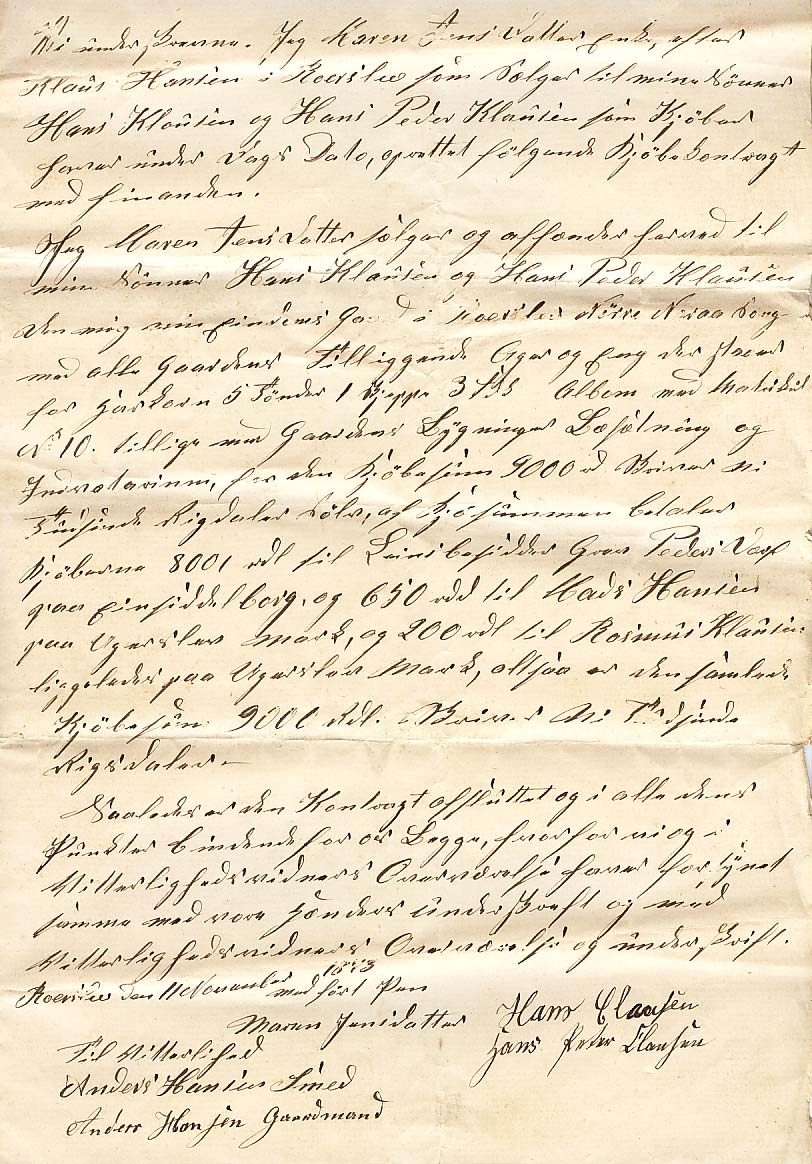 Vi underskrevne. Jeg Maren Jens Datter Enke efter
Klaus Hansen i Roerslev som Sælger til mine Sönner
Hans Klausen og Hans Peder Klausen som Kjöber
haver under Dags Dato, oprettet fölgende Kjöbekontragt
med hinanden.
Jeg Maren Jens Datter sælger og afhænder herved til
mine Sönner Hans Klausen og Hans Peder Klausen
den mig min Eiendoms Gaard i Roerslev Nörre Næraa Sogn
med alle Gaardens Tilliggende Ager og Eng der staaer
for Hartkorn 5 Tönder 1 Skjeppe 3 Fdk Album med Matrikul
No 10. tillige med Gaardens Bygninger Besætning og
Indvetarium, for den Kjöbesum 9000 rd Skriver Ni
Tusinde Rigdaler Sölv, af Kjösummen betaler
Kjöberne 8001 rdl til Leinsbesidder Grev Peders Dorf
paa Einsiddelborg, og 650 rdl til Mads Hansen
paa Ugerslev Mark, og 200 rdl til Rasmus Klausen
liggeledes paa Ugerslev Mark, altsaa er den samlede
Kjöbesum 9000 Rdl. Skriver Ni Tudsinde
Rigsdaler
Saaledes er den Kontragt afsluttet og i alle dens
Punkter bindende for os Begge, hvorfor vi og i
Vitterlighedsvidners Overværelse haver for synet
samme med vore Hænders underskreft og med
Vitterlighedsvidners Overværelse og underskrift.
Roerslev den 11 November
med fört Pen
Maren Jensdatter Hans Clausen
Hans Peter Clausen
Til Vitterlihed
Anders Hansen Smed
Anders Hansen Gaardmand